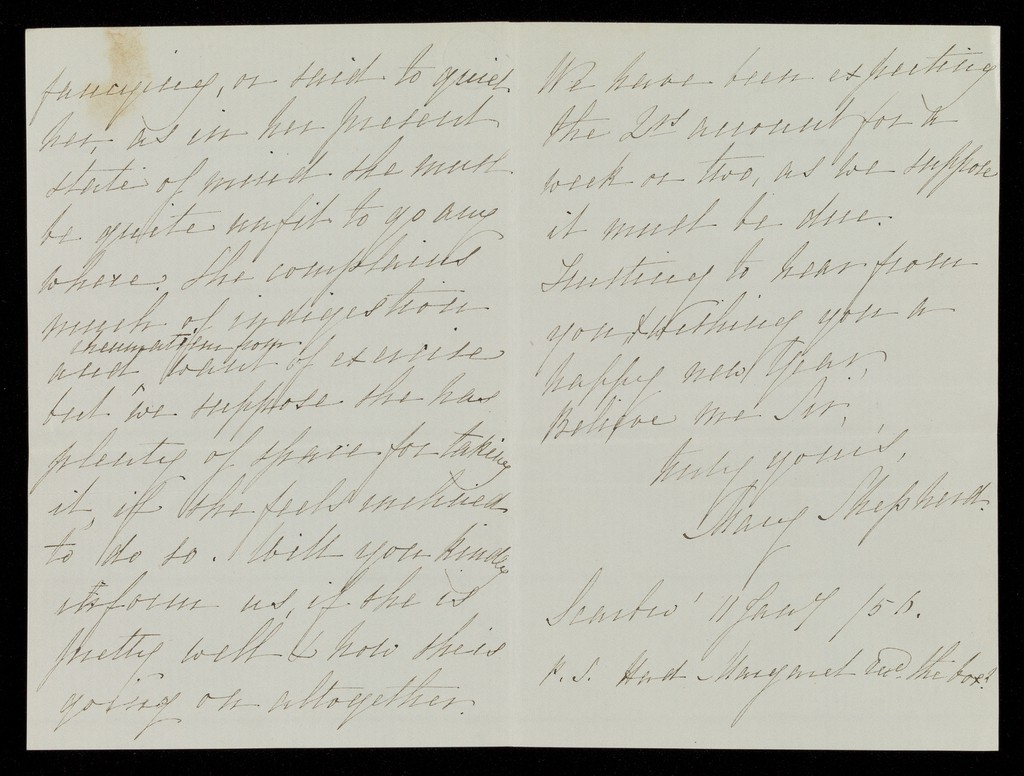 fancying, or said to quiet
her, as in her present
state of mind she must
be quite unfit to go any
where. She complains
much of indigestion
rheumatism from
and want of exercise
but we suppose she has
plenty of space for taking
it, if she feels inclined
to do so. Will you kindly
inform us, if she is
pretty well & how she is
going on altogether.
We have been expecting
the 2nd account for a
week or two, as we suppose
it must be due.
Trusting to hear from
you & wishing you a
happy new Year,
Believe me Sir,
truly your's,
Mary Shepherd.
11 Jany
P.S. Had Margaret recd the box?